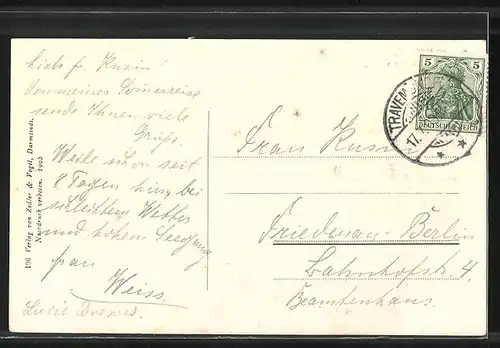 Liebe fr. Kusin!
Von meiner Somerreise
sende Ihnen viele
Grüße.
Weile schon seit
8 Tagen hier bei
schlechtem Wetter
und hohem Seegang
frau
Weiss.
Lucie Drewes.
196 Verlag von Zedler & Vogel, Darmstadt.
Nachdruck verboten. 1905
5 5
DEUTSCHES REICH
TRAVEM
17.
Frau Kusin
Friedenau-Berlin
Bahnhofstr. 4.
Beamtenhaus.